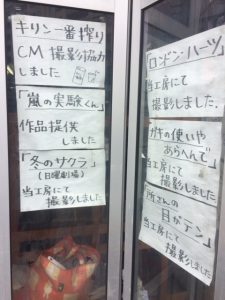 キリン一番搾り
CM 撮影協力
しました
「嵐の実験くん」
作品提供
しました
「冬のサクラ」
(日曜劇場)
当工房にて
撮影しました
「ロンドン・ハーツ」
当工房にて
撮影しました。
ガキの使いや
あらへんで」
当工房にて
撮影しました
「所さんの
目がテン」
当工房にて
撮影しました